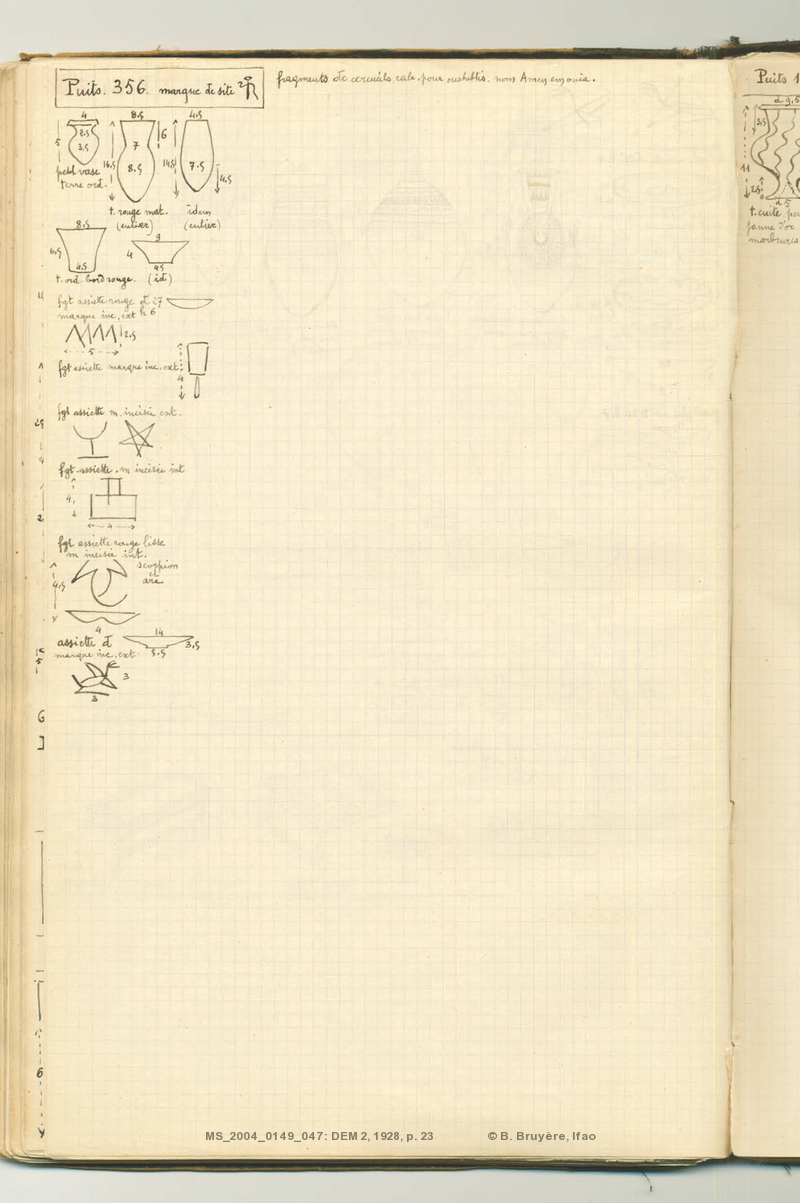 Puits. 356. marque de site
fragments de cercueils calc. pour oushebtis. nom Amen em ouia.
4
2.5
3.5
5
petit vase
terre ord.
8.5
7
8.5
16.5
6
t. rouge mat.
(entier)
4.5
14.5
7.5
4.5
idem
(entier)
8.5
6.5
4.5
t. ord. bord rouge.
9
4
4.5
(id)
fgt assiette rouge d 27
marque inc. ext h 6
2.5
5
fgt assiette marque inc. ext.
4
fgt assiette m. incisée ext.
fgt. assiette. m incisée int
4
4
fgt assiette rouge lisse
m incisée int.
scorpion
et
arc
4.5
4
assiette d
14
3.5
5.5
marque inc. ext
3
3
Puits 1
d 9.5
3.5
11
2.5
d 5
t. cuite
jaune d'oc
marbrures
MS_2004_0149_047: DEM 2, 1928, p. 23
© B. Bruyère, Ifao